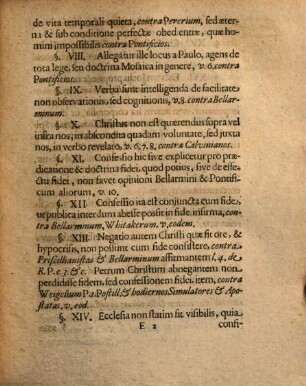 de vita temporali quieta, contra Pererium, sed æter-
na & sub conditione perfectæ obedientiæ, quæ ho-
mini impossibilis contra Pontificios.
§. VIII. Allegatur ille locus a Paulo, agens de
tota lege, seu doctrina Mosaica in genere, v. 6. contra
Pontificios.
§. IX. Verba sunt intelligenda de facilitate
non observationis, sed cognitionis, v. 8. contra Bellar-
minum.
§. X. Christus non est quærendus supra vel
infra nos, in abscondita quadam voluntate, sed juxta
nos, in verbo revelato, v. 6. 7. 8, contra Calvinianos.
§. XI. Confessio hic sive explicetur pro præ-
dicatione & doctrina fidei, quod potius, sive de effe-
ctu fidei, non favet opinioni Bellarmini & Pontifi-
cum aliorum, v. 10.
§. XII. Confessio ita est conjuncta cum fide,
ut publica interdum abesse possit in fide infirma, con-
tra Bellarminum, Whitakerum, v, eodem.
§. XIII. Negatio autem Christi quæ fit ore, &
hypocrisis, non possunt cum fide consistere, contra
Priscillianistas & Bellarminum affirmantem l. 4. de
R. P. c. 3. & c. Petrum Christum abnegantem non
perdidisse fidem, sed confessionem fidei. item, contra
Weigelium Pa. Postill, & hodiernos Simulatores & Apo-
statas, v, eod.
§. XIV. Ecclesia non statim fit visibilis, quia
E 2 confi-